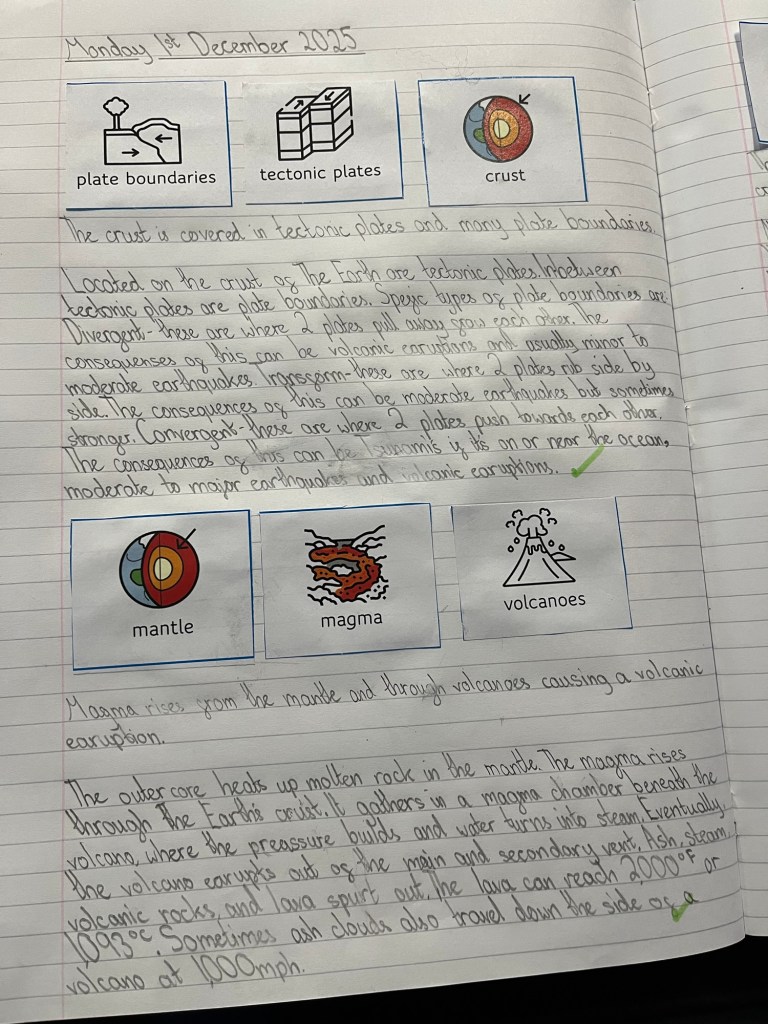 Monday 1st December 2025
plate boundaries
tectonic plates
crust
The crust is covered in tectonic plates and many plate boundaries.
Located on the crust of The Earth are tectonic plates. Inbetween
tectonic plates are plate boundaries. Spefic types of plate boundaries are:
Divergent- these are where 2 plates pull away from each other. The
consequenses of this can be volcanic earuptions and usually minor to
moderate earthquakes. Transform-these are where 2 plates rub side by
side. The consequences of this can be moderate earthquakes but sometimes
stronger. Convergent-these are where 2 plates push towards each other.
The consequences of this can be Tsunamis if its on or near the ocean,
moderate to major earthquakes and volcanic earuptions.
mantle
magma
volcanoes
Magma rises from the mantle and through volcanoes causing a volcanic
earuption.
The outer core heats up molten rock in the mantle. The magma rises
through The Earth's crust. It gathers in a magma chamber beneath the
volcano, where the preassure builds and water turns into steam. Eventually,
the volcano earupts out of the main and secondary vent. Ash, steam,
volcanic rocks, and lava spurt out. The lava can reach 2,000°F or
1,093°C. Sometimes ash clouds also travel down the side of a
volcano at 1,000mph.